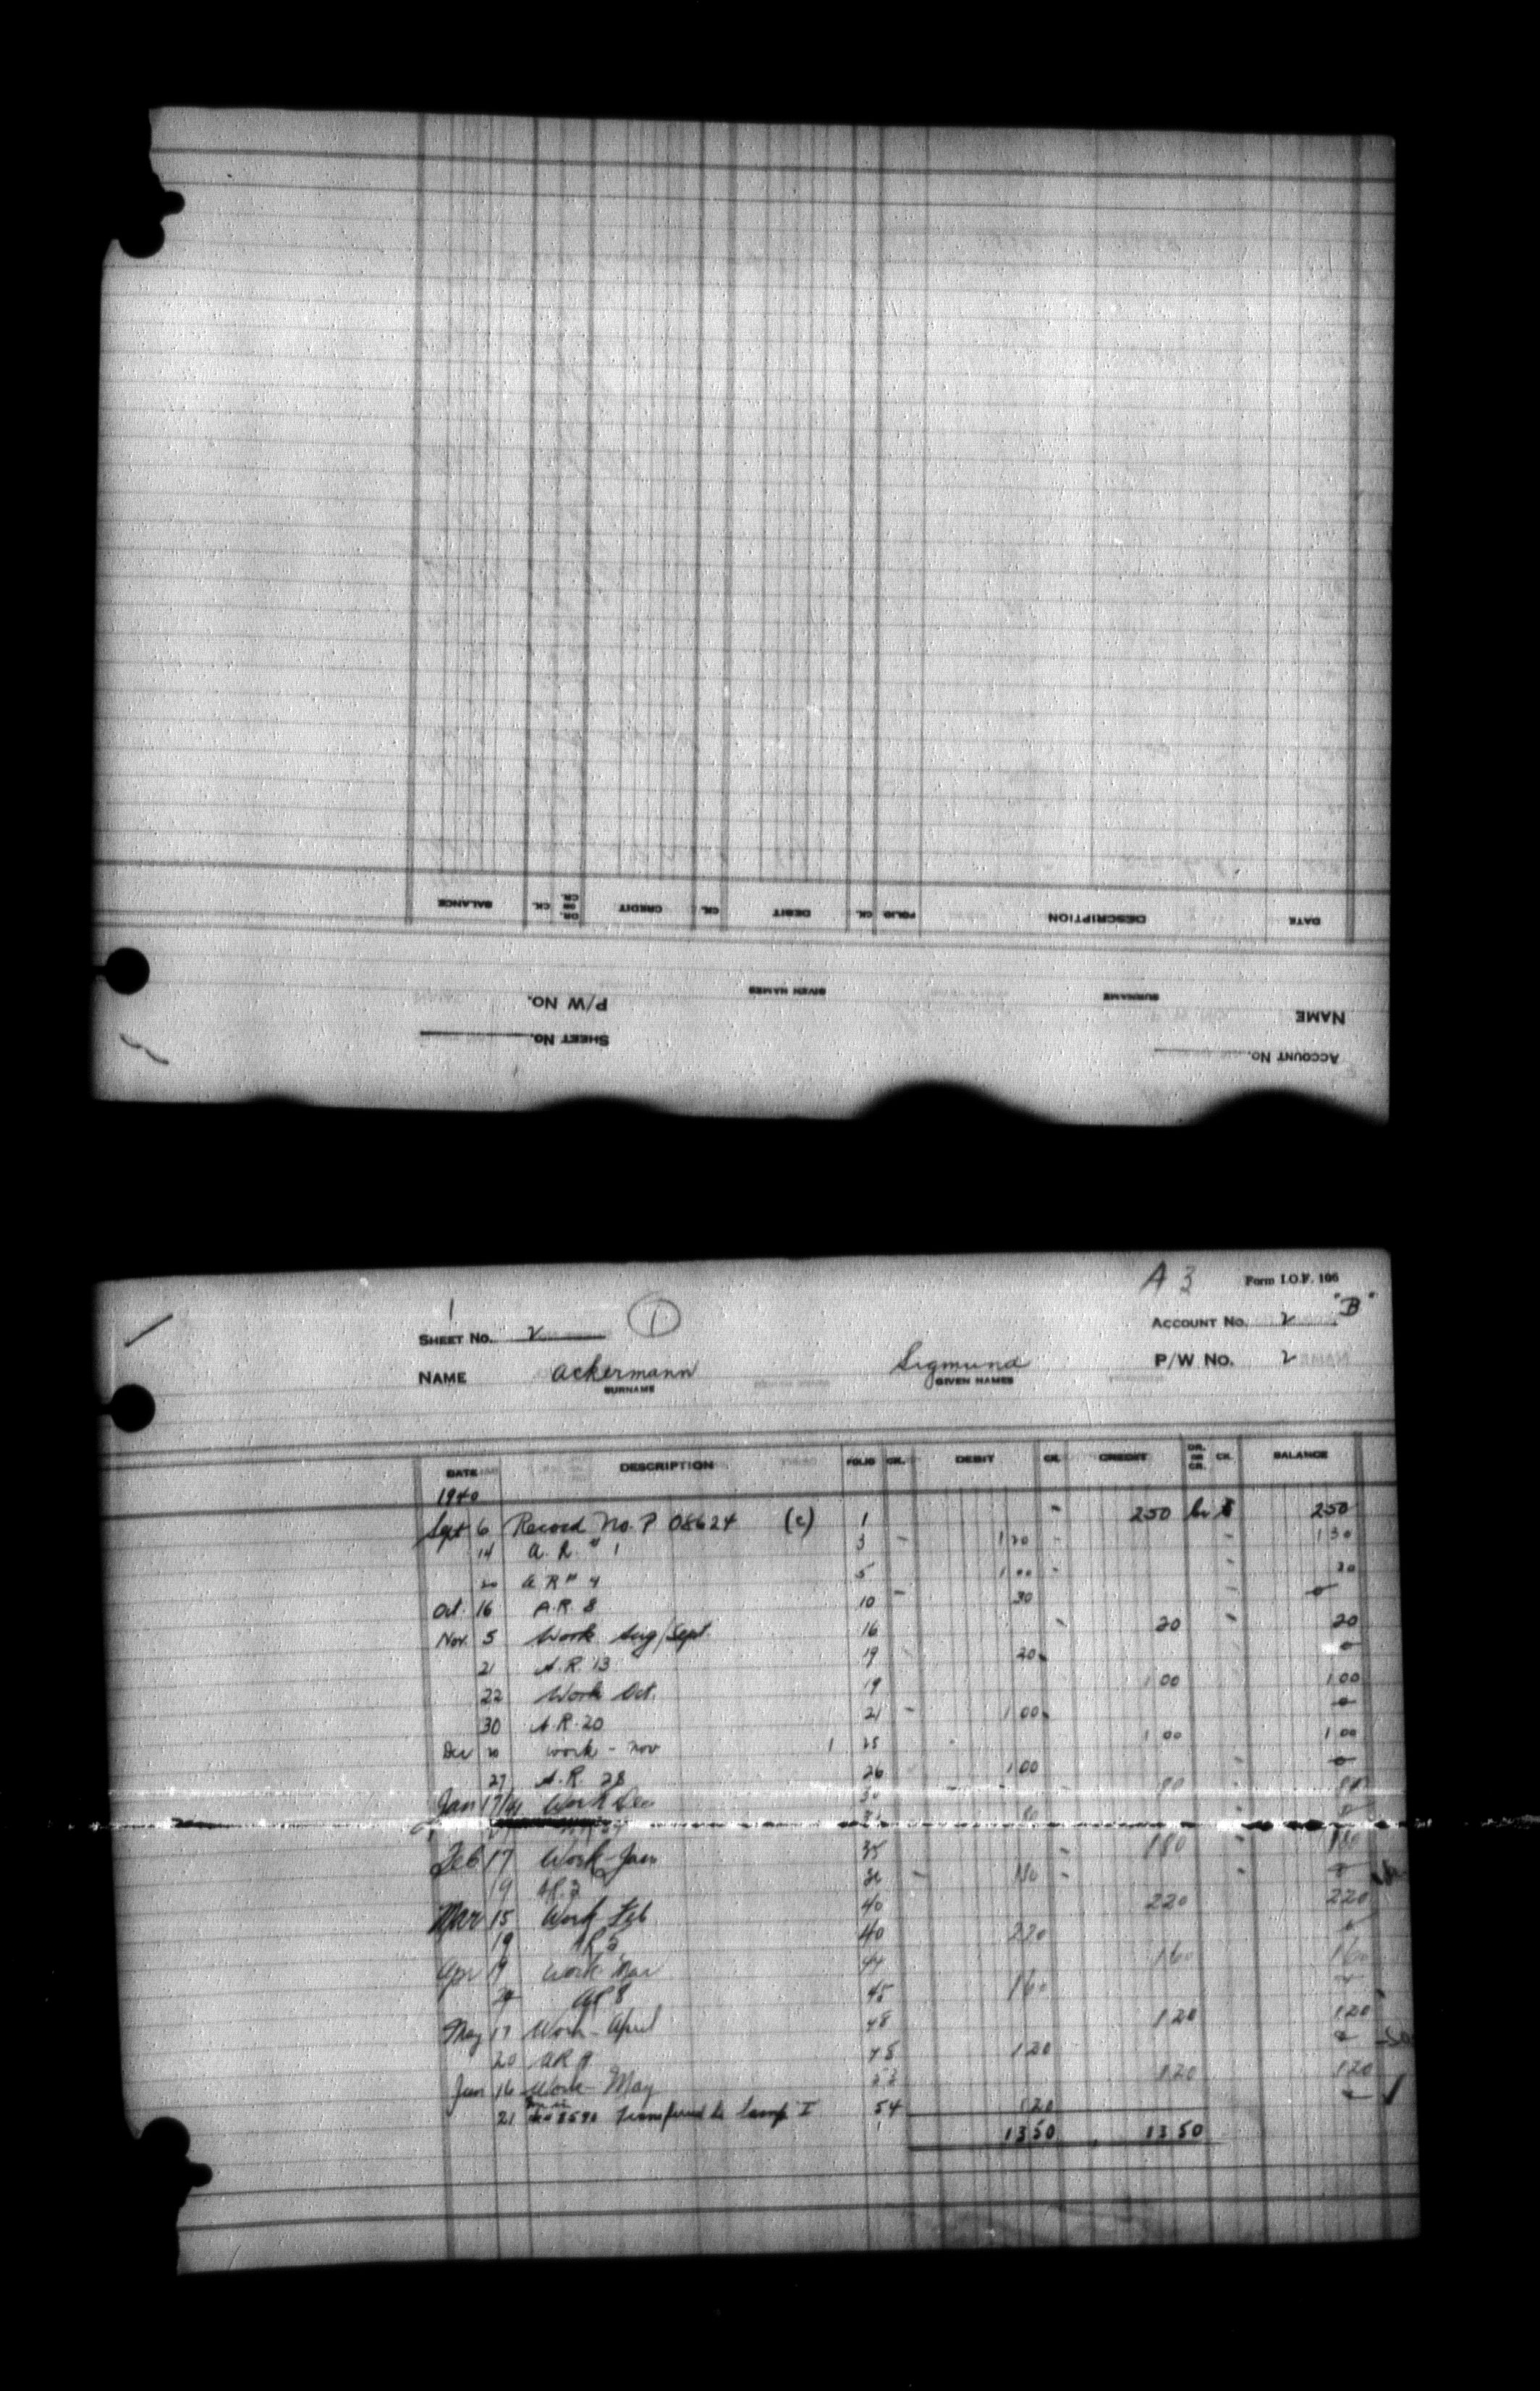 BALANCE CK. DR. OR CR. CREDIT CK. DEBIT CK. FOLIO DESCRIPTION DATE
P/W NO. GIVEN NAMES SURNAME NAME
SHEET NO. ACCOUNT NO.
A 3 Form I.O.F. 106
1 "B"
SHEET NO. 2 1 ACCOUNT NO. 2
NAME Ackermann Sigmund P/W NO. 2
SURNAME GIVEN NAMES
DATE DESCRIPTION FOLIO CK. DEBIT CK. CREDIT DR. OR CR. CK. BALANCE
1940
Sept 6 Record No. P 08624 (c) 1 2 50 Cr 2 50
14 A. R. # 1 3 1 20 1 30
20 A R # 4 5 1 00 30
Oct. 16 A.R. 8 10 30 0
Nov. 5 Work Aug/Sept. 16 20 20
21 A.R. 13 19 20 0
22 Work Oct. 19 1 00 1 00
30 A.R. 20 21 1 00 0
Dec 20 work - Nov 1 25 1 00 1 00
27 A.R. 28 26 1 00 0
Jan 17/41 Work Dec 30 80 80
80 0
Feb 17 Work Jan 35 1 80 1 80
19 AR 2 36 1 80 0
Mar 15 Work Feb 40 2 20 2 20
19 AR 5 40 2 20 0
Apr 19 Work Mar 44 1 60 1 60
AR 8 45 1 60
May 17 Work - April 48 1 20 1 20
20 AR 9 48 1 20 0
Jun 16 Work - May 1 20 1 20
21 Transferred to Camp I 54 1 20 0
13 50 13 50